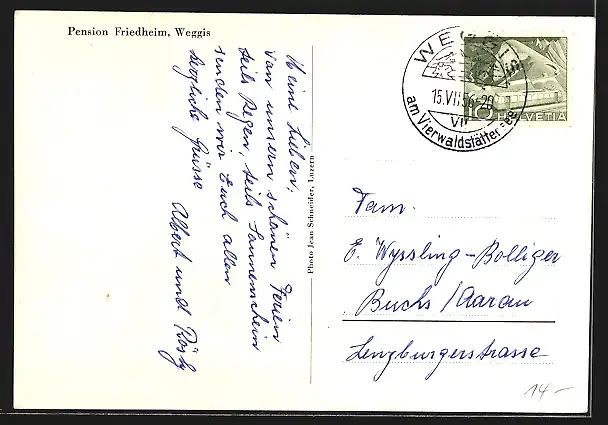 Pension Friedheim, Weggis
Meine Lieben,
Von unsern schönen Ferien
teils Regen, teils Sonnenschein
senden wir Euch allen
herzliche Grüsse
Albert und Rösly
Photo Jean Schneider, Luzern
WEGGIS
15.VII.56-20
VII
am Vierwaldstättersee
HELVETIA
Fam.
E. Wyssling-Bolliger
Buchs/Aarau
Lenzburgerstrasse
14-